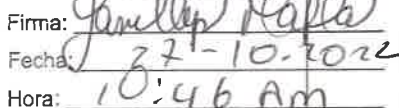 Firma:
Fecha: 27-10-2022
Hora: 10:46 Am